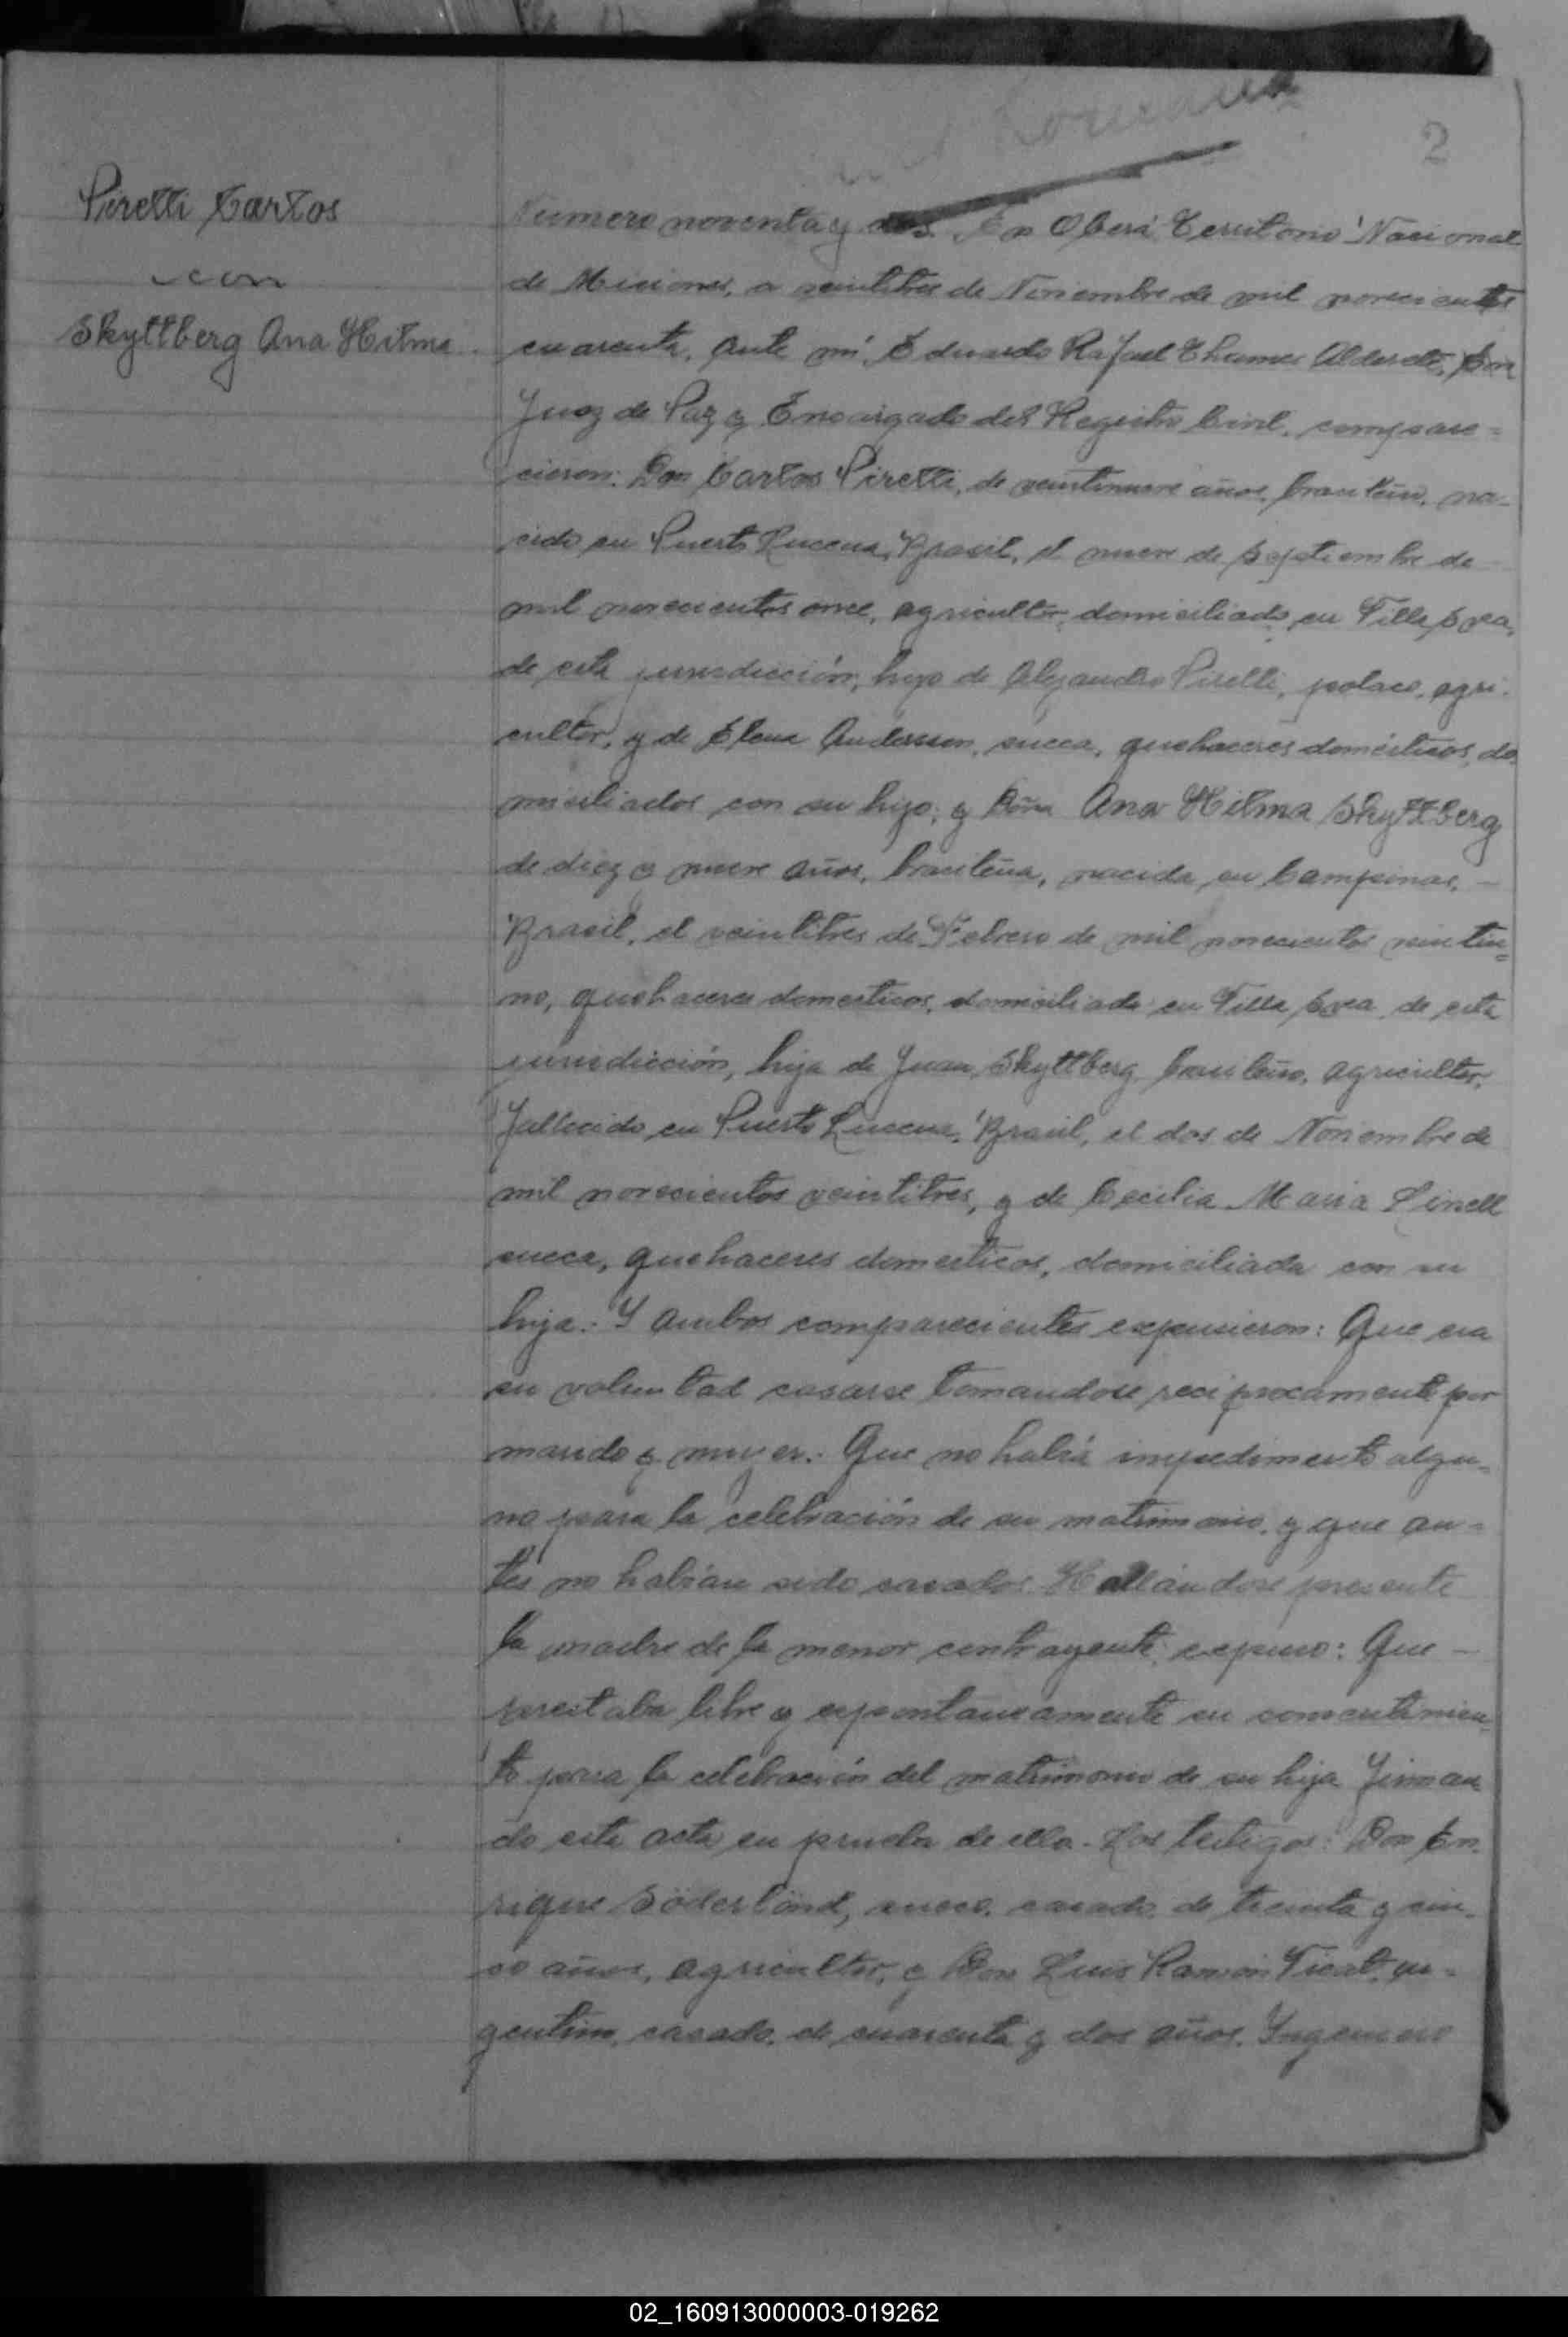 2
Piretti Carlos
con
Skyttberg Ana Hilma
Numero noventa y dos. En Oberá Territorio Nacional
de Misiones, a veintitres de Noviembre de mil novecientos
cuarenta, ante mi Eduardo Rafael Thames Alderete,
Juez de Paz y Encargado del Registro Civil, compare=
cieron: Don Carlos Piretti, de veintinueve años, brasileño, na-
cido en Puerto Lucena, Brasil, el nueve de Septiembre de
mil novecientos once, agricultor, domiciliado en Villa Svea,
de esta jurisdicción, hijo de Alejandro Piretti, polaco, agri-
cultor, y de Elena Andersson, sueca, quehaceres domésticos, do-
miciliados con su hijo; y Doña Ana Hilma Skyttberg
de diez y nueve años, brasileña, nacida en Campinas, -
Brasil, el veintitres de Febrero de mil novecientos veintiu=
no, quehaceres domesticos, domiciliada en Villa Svea, de esta
jurisdicción, hija de Juan Skyttberg, brasileño, agricultor,
fallecido en Puerto Lucena, Brasil, el dos de Noviembre de
mil novecientos veintitres, y de Cecilia Maria Linell
sueca, quehaceres domesticos, domiciliada con su
hija.- Y ambos comparecientes expusieron: Que era
su voluntad casarse tomandose reciprocamente por
marido y mujer.- Que no había impedimento algu-
no para la celebración de su matrimonio, y que an=
tes no habían sido casados. Hallándose presente
la madre de la menor contrayente, expuso: Que -
prestaba libre y espontaneamente su consentimien=
to para la celebración del matrimonio de su hija firman
do esta acta en prueba de ello.- Los testigos: Don En-
rique Söderlönd, sueco, casado, de treinta y cin-
co años, agricultor, y Don Luis Ramón Ticat, ar-
gentino, casado, de cuarenta y dos años, Ingeniero
02_160913000003-019262